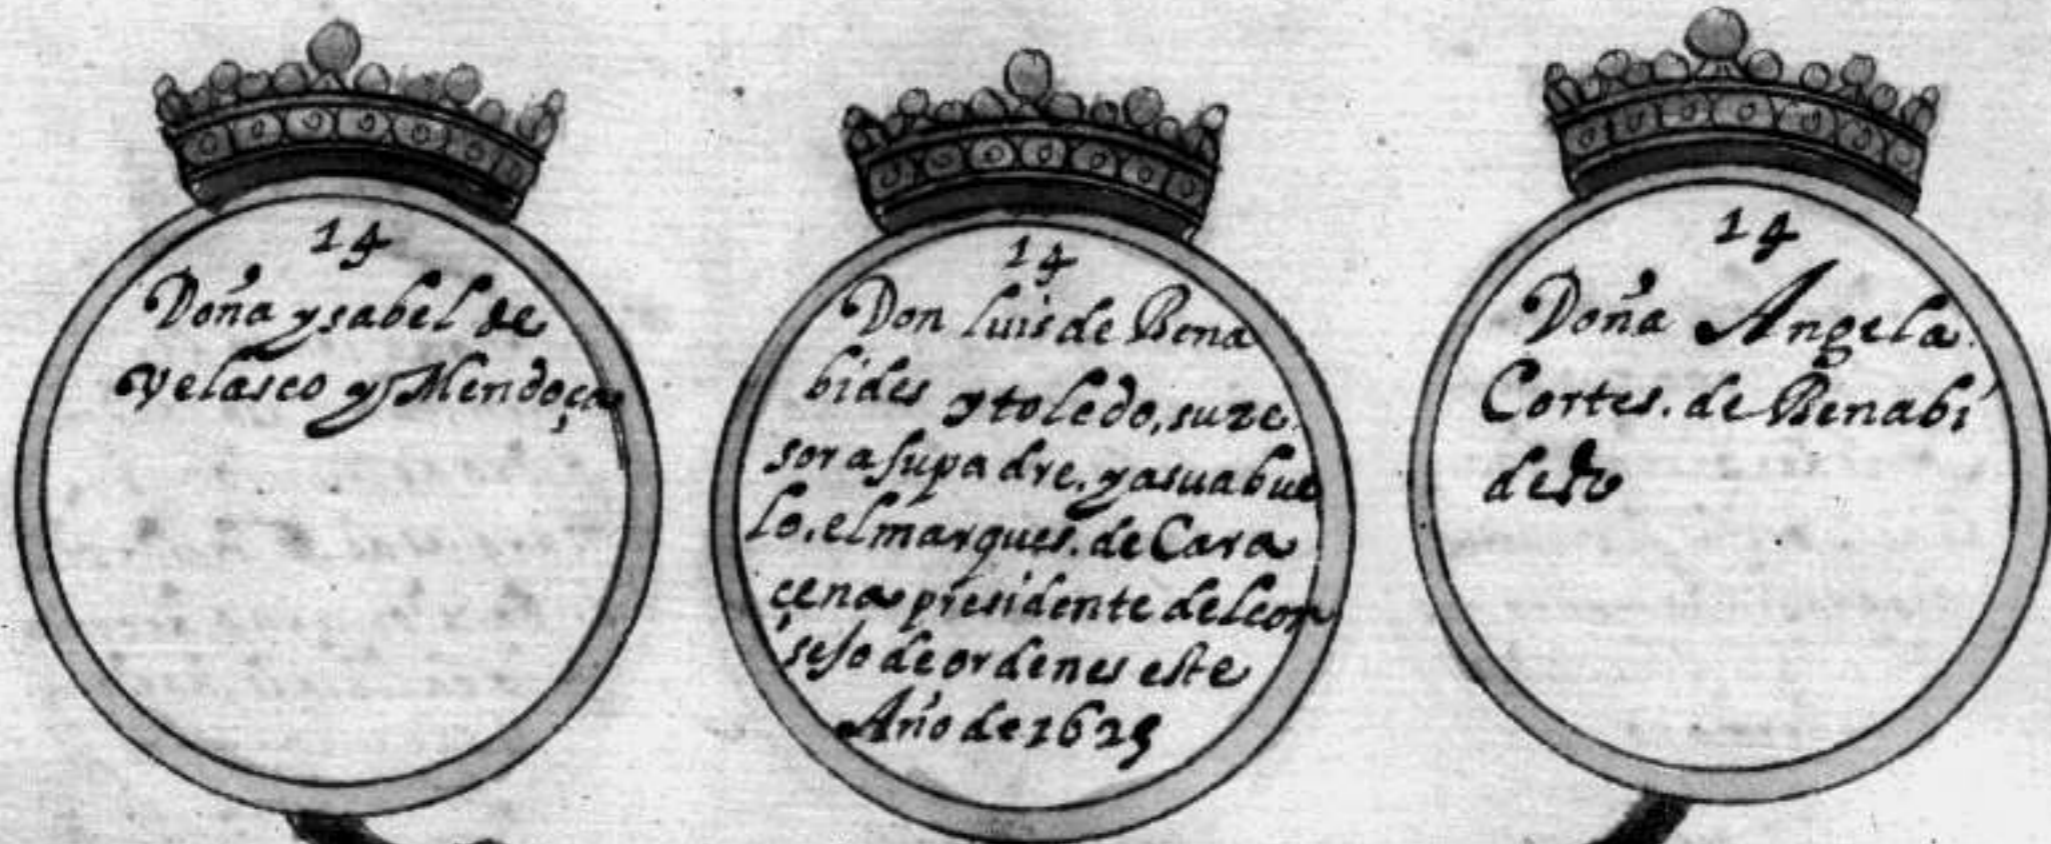 14
Doña ysabel de
velasco y Mendoça
14
Don luis de Bena
bides y toledo, suze
sor a su padre, y a su abue
lo, el marques. de Cara
çena presidente del con
sejo de ordenes este
Año de 1625
14
Doña Angela
Cortes. de Benabi
des